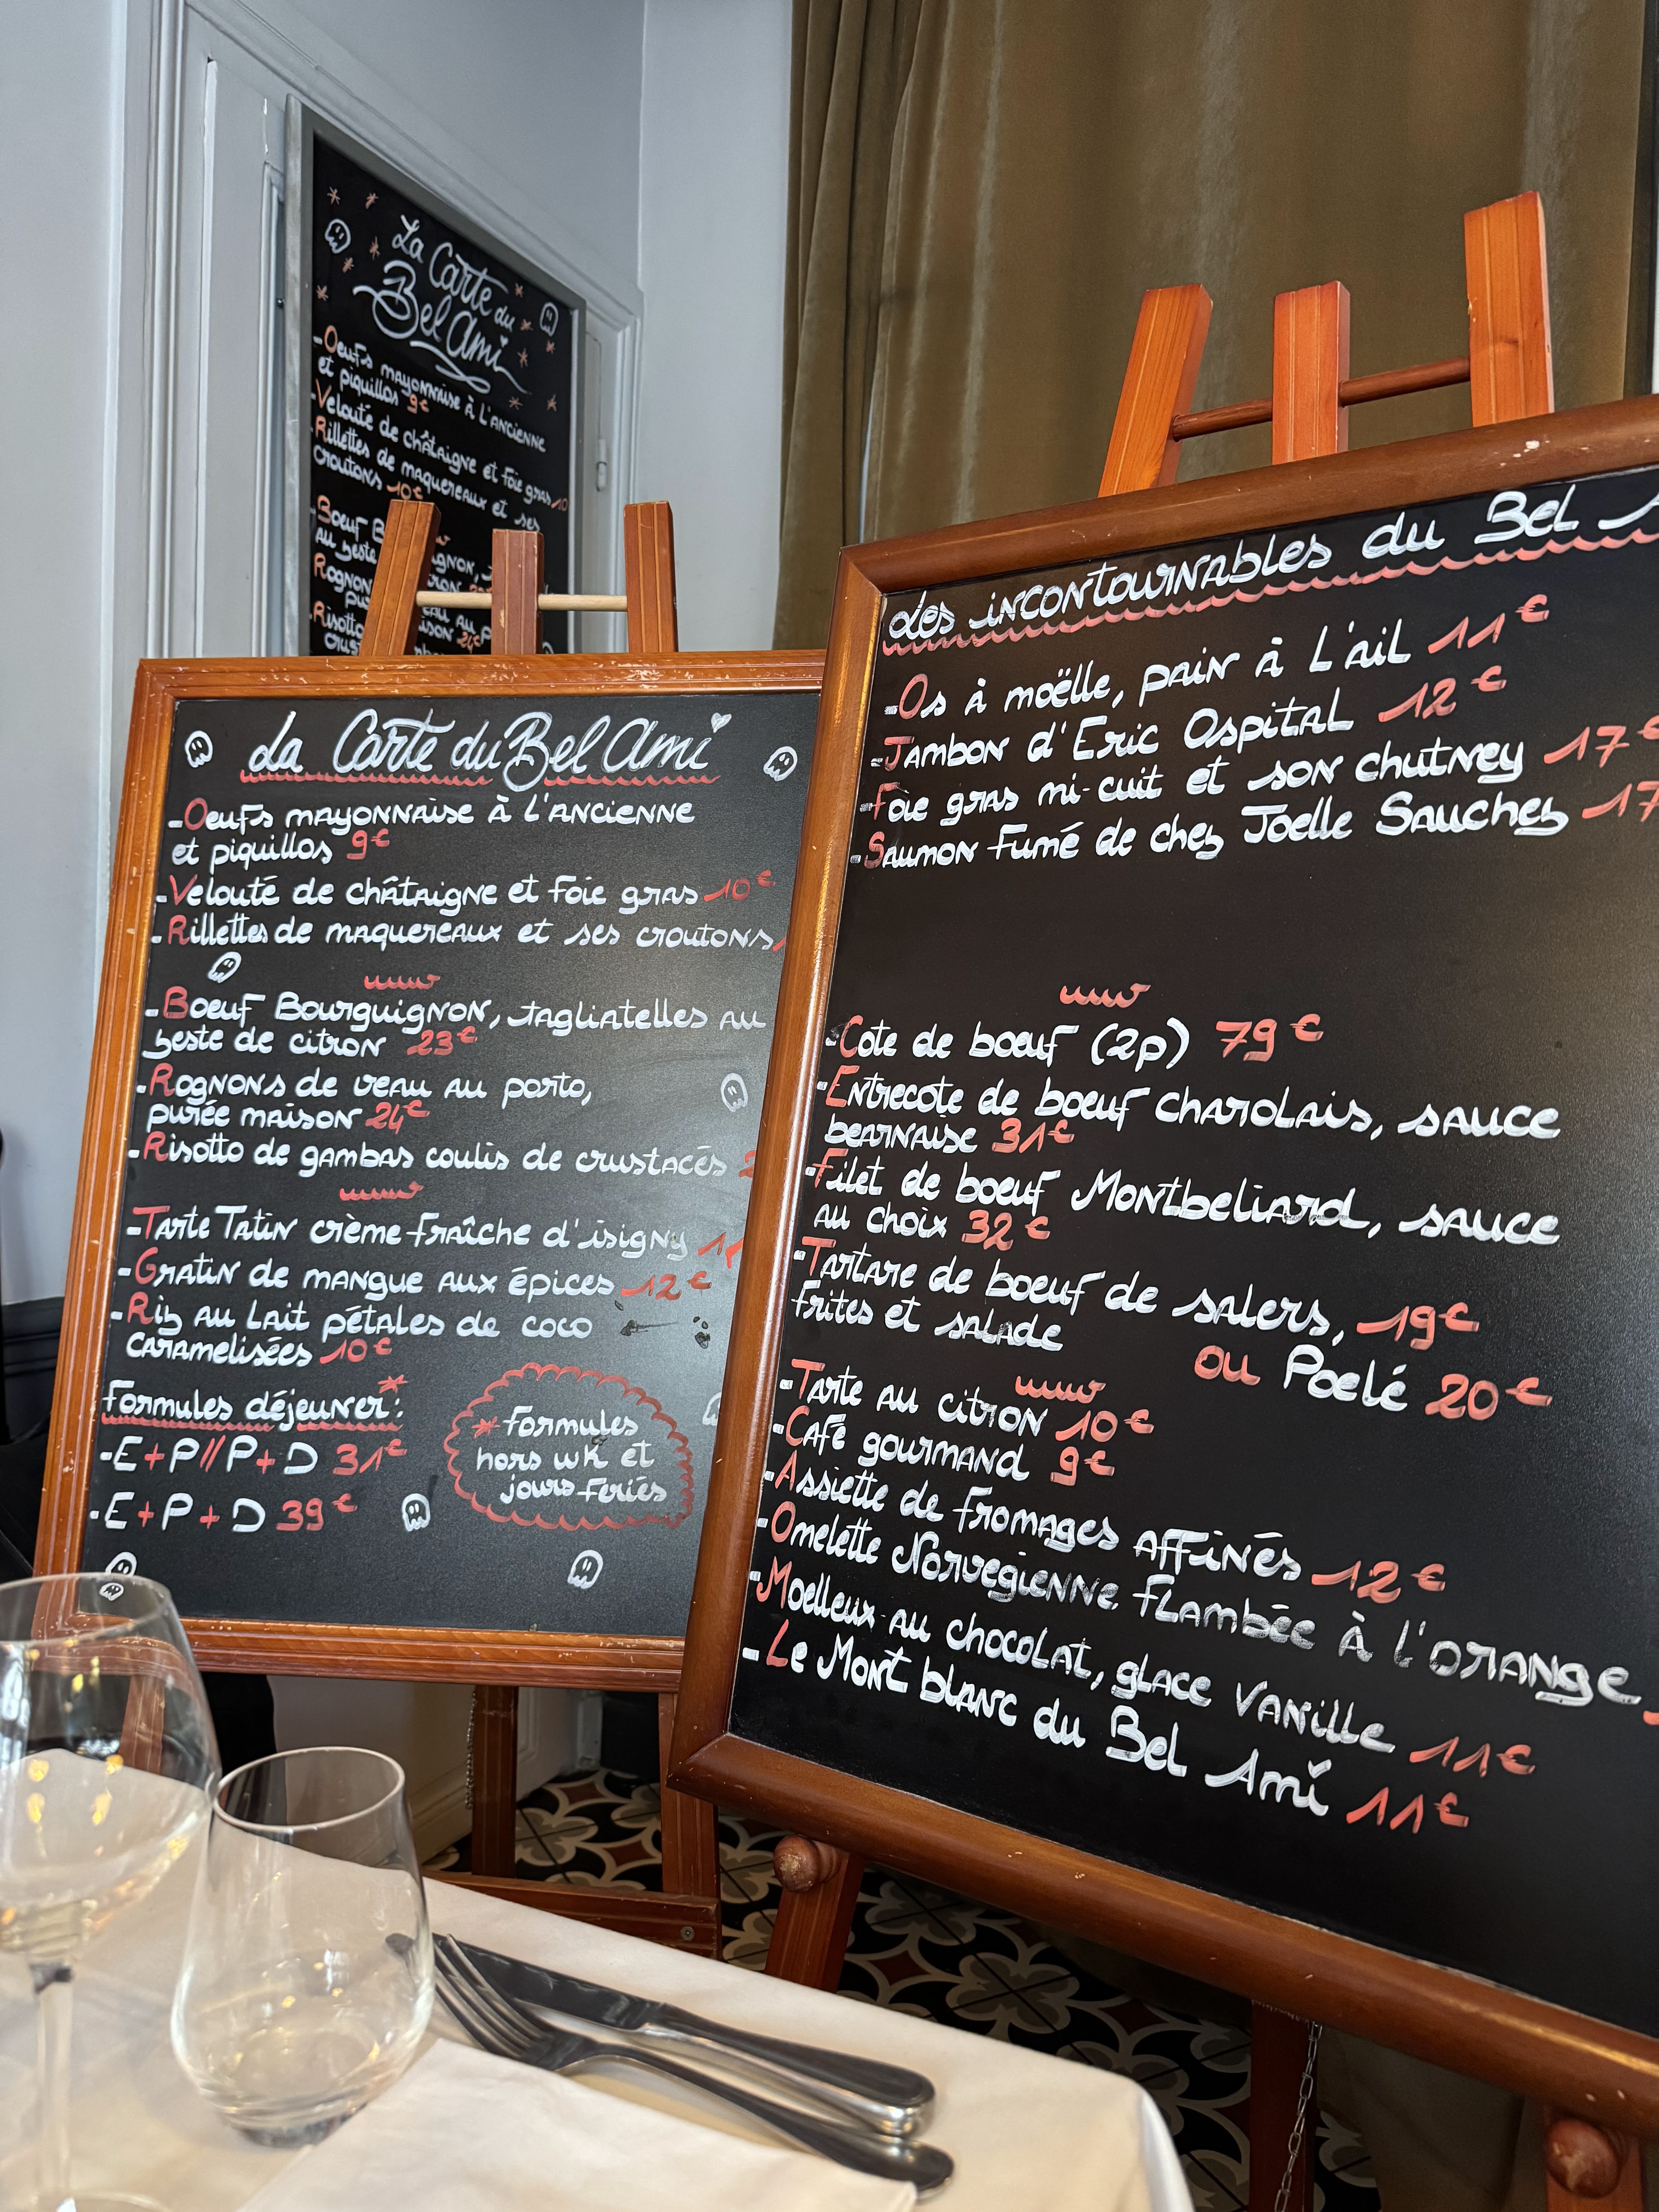 La Carte du
Bel Ami
-Oeufs mayonnaise à l'ancienne
et piquillos 9€
-Velouté de châtaigne et foie gras 10
-Rillettes de maquereaux et ses
croutons 10€
-Boeuf
au zeste
Rognon
Risotto
La Carte du Bel Ami
-Oeufs mayonnaise à l'ancienne
et piquillos 9€
-Velouté de châtaigne et foie gras 10€
-Rillettes de maquereaux et ses croutons
-Boeuf Bourguignon, tagliatelles au
zeste de citron 23€
-Rognons de veau au porto,
purée maison 24€
-Risotto de gambas coulis de crustacés 2
-Tarte Tatin crème fraîche d'isigny
-Gratin de mangue aux épices 12€
-Riz au lait pétales de coco
caramelisées 10€
Formules déjeuner*:
-E+P//P+D 31€
-E+P+D 39€
*Formules
hors wk et
jours feriés
Les incontournables du Bel
-Os à moëlle, pain à l'ail 11€
-Jambon d'Eric Ospital 12€
-Foie gras mi-cuit et son chutney 17€
-Saumon fumé de chez Joelle Sauches 17
-Cote de boeuf (2p) 79€
-Entrecote de boeuf charolais, sauce
bearnaise 31€
-Filet de boeuf Montbeliard, sauce
au choix 32€
-Tartare de boeuf de salers, 19€
frites et salade
ou Poelé 20€
-Tarte au citron 10€
-Café gourmand 9€
-Assiette de fromages affinés 12€
-Omelette Norvegienne flambée à l'orange
-Moelleux au chocolat, glace vanille 11€
-Le Mont blanc du Bel Ami 11€